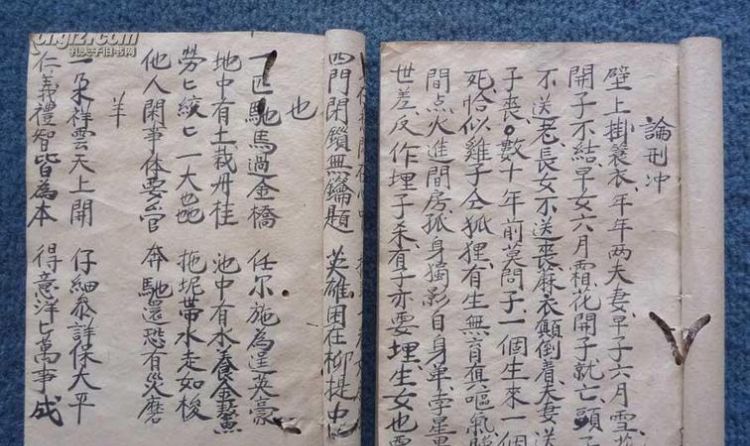 論刑冲
壁上掛蓑衣年年两夫妻早子六月雪
開子不结早女六月霜花開子就亡頭子
不送老長女不送喪蔴衣顛倒着夫妻送
子喪。數十年前莫問子一個生來一個
死恰似雞子仝狐狸有生無育直嘔氣
間点火進間房孤身獨影自身单孛星
世差反作埋子杀有子亦要埋生女也要
四門閉鎖無鑰題 英雄困在柳提中
也
一匹馳馬過金橋 任尔施為逞英豪
地中有土栽丹桂 池中有水養金鰲
勞匕絞匕一大也 拖坭帶水走如梭
他人閑事休要管 奔馳還恐有災磨
羊
一朵祥雲天上開 仔細叅詳休大平
仁義禮智皆為本 得意洋匕萬事成
孔夫子旧书网